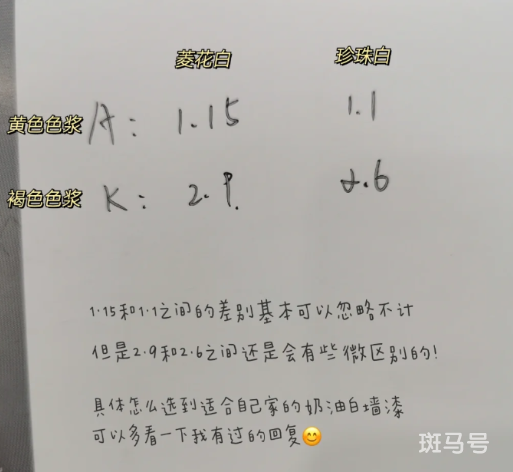 菱花白 珍珠白
黄色色浆 A: 1.15 1.1
褐色色浆 K: 2.9 2.6
1.15和1.1之间的差别基本可以忽略不计
但是2.9和2.6之间还是会有些微区别的!
具体怎么选到适合自己家的奶油白墙漆
可以多看一下我有过的回复😊
斑马号